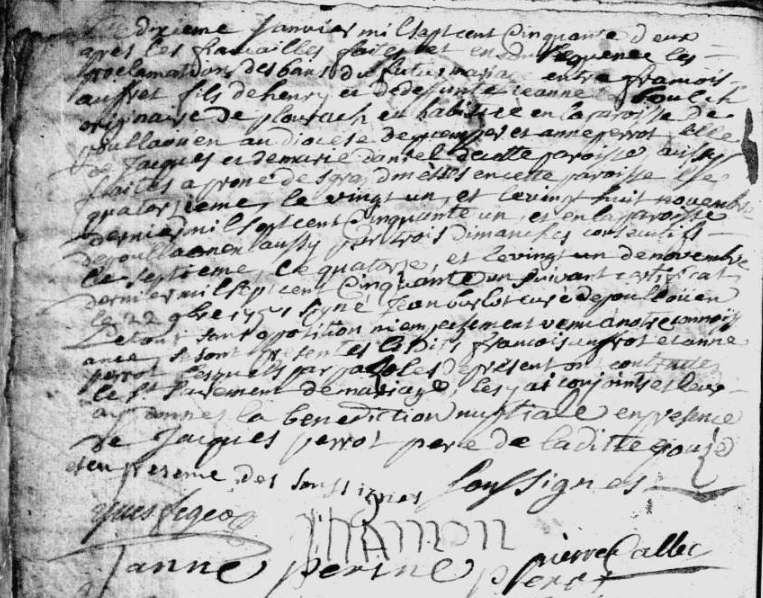 Le dixieme Janvier mil sept cent Cinquante deux
apres les fiancailles faites et en Consequence les
proclamations des bans du futur mariage entre francois
auffret fils de henry et de defunte jeanne
originaire de plourach et habitué en la paroisse de
poullaouen au diocese de quimper et anne perrot fille
de Jacques et de marie daniel de cette paroisse aussy
faites a prone de grandmesses en cette paroisse les
quatorzieme, le vingt un, et le vingt huit novembre
dernier mil sept cent Cinquante un, et en la paroisse
de poullaouen aussy par trois dimanches consecutifs
le septieme, le quatorze, et le vingt un de novembre
dernier mil sept cent Cinquante un suivant certificat
le 22 9bre 1751 signé jean curé de poullaouen
Le tout sans opposition ni empechement venu a notre connoiss
ance, se sont presentés lesdits francois auffret et anne
perrot lesquels par paroles de present ont contracté
le st sacrement de mariage, les y ai conjoints et leur
ai donnes la benediction nuptiale en presence
de Jacques perrot pere de laditte epouse
et en presence des soussignes soussignes
yves
J hamon
Janne perine pierre Callec